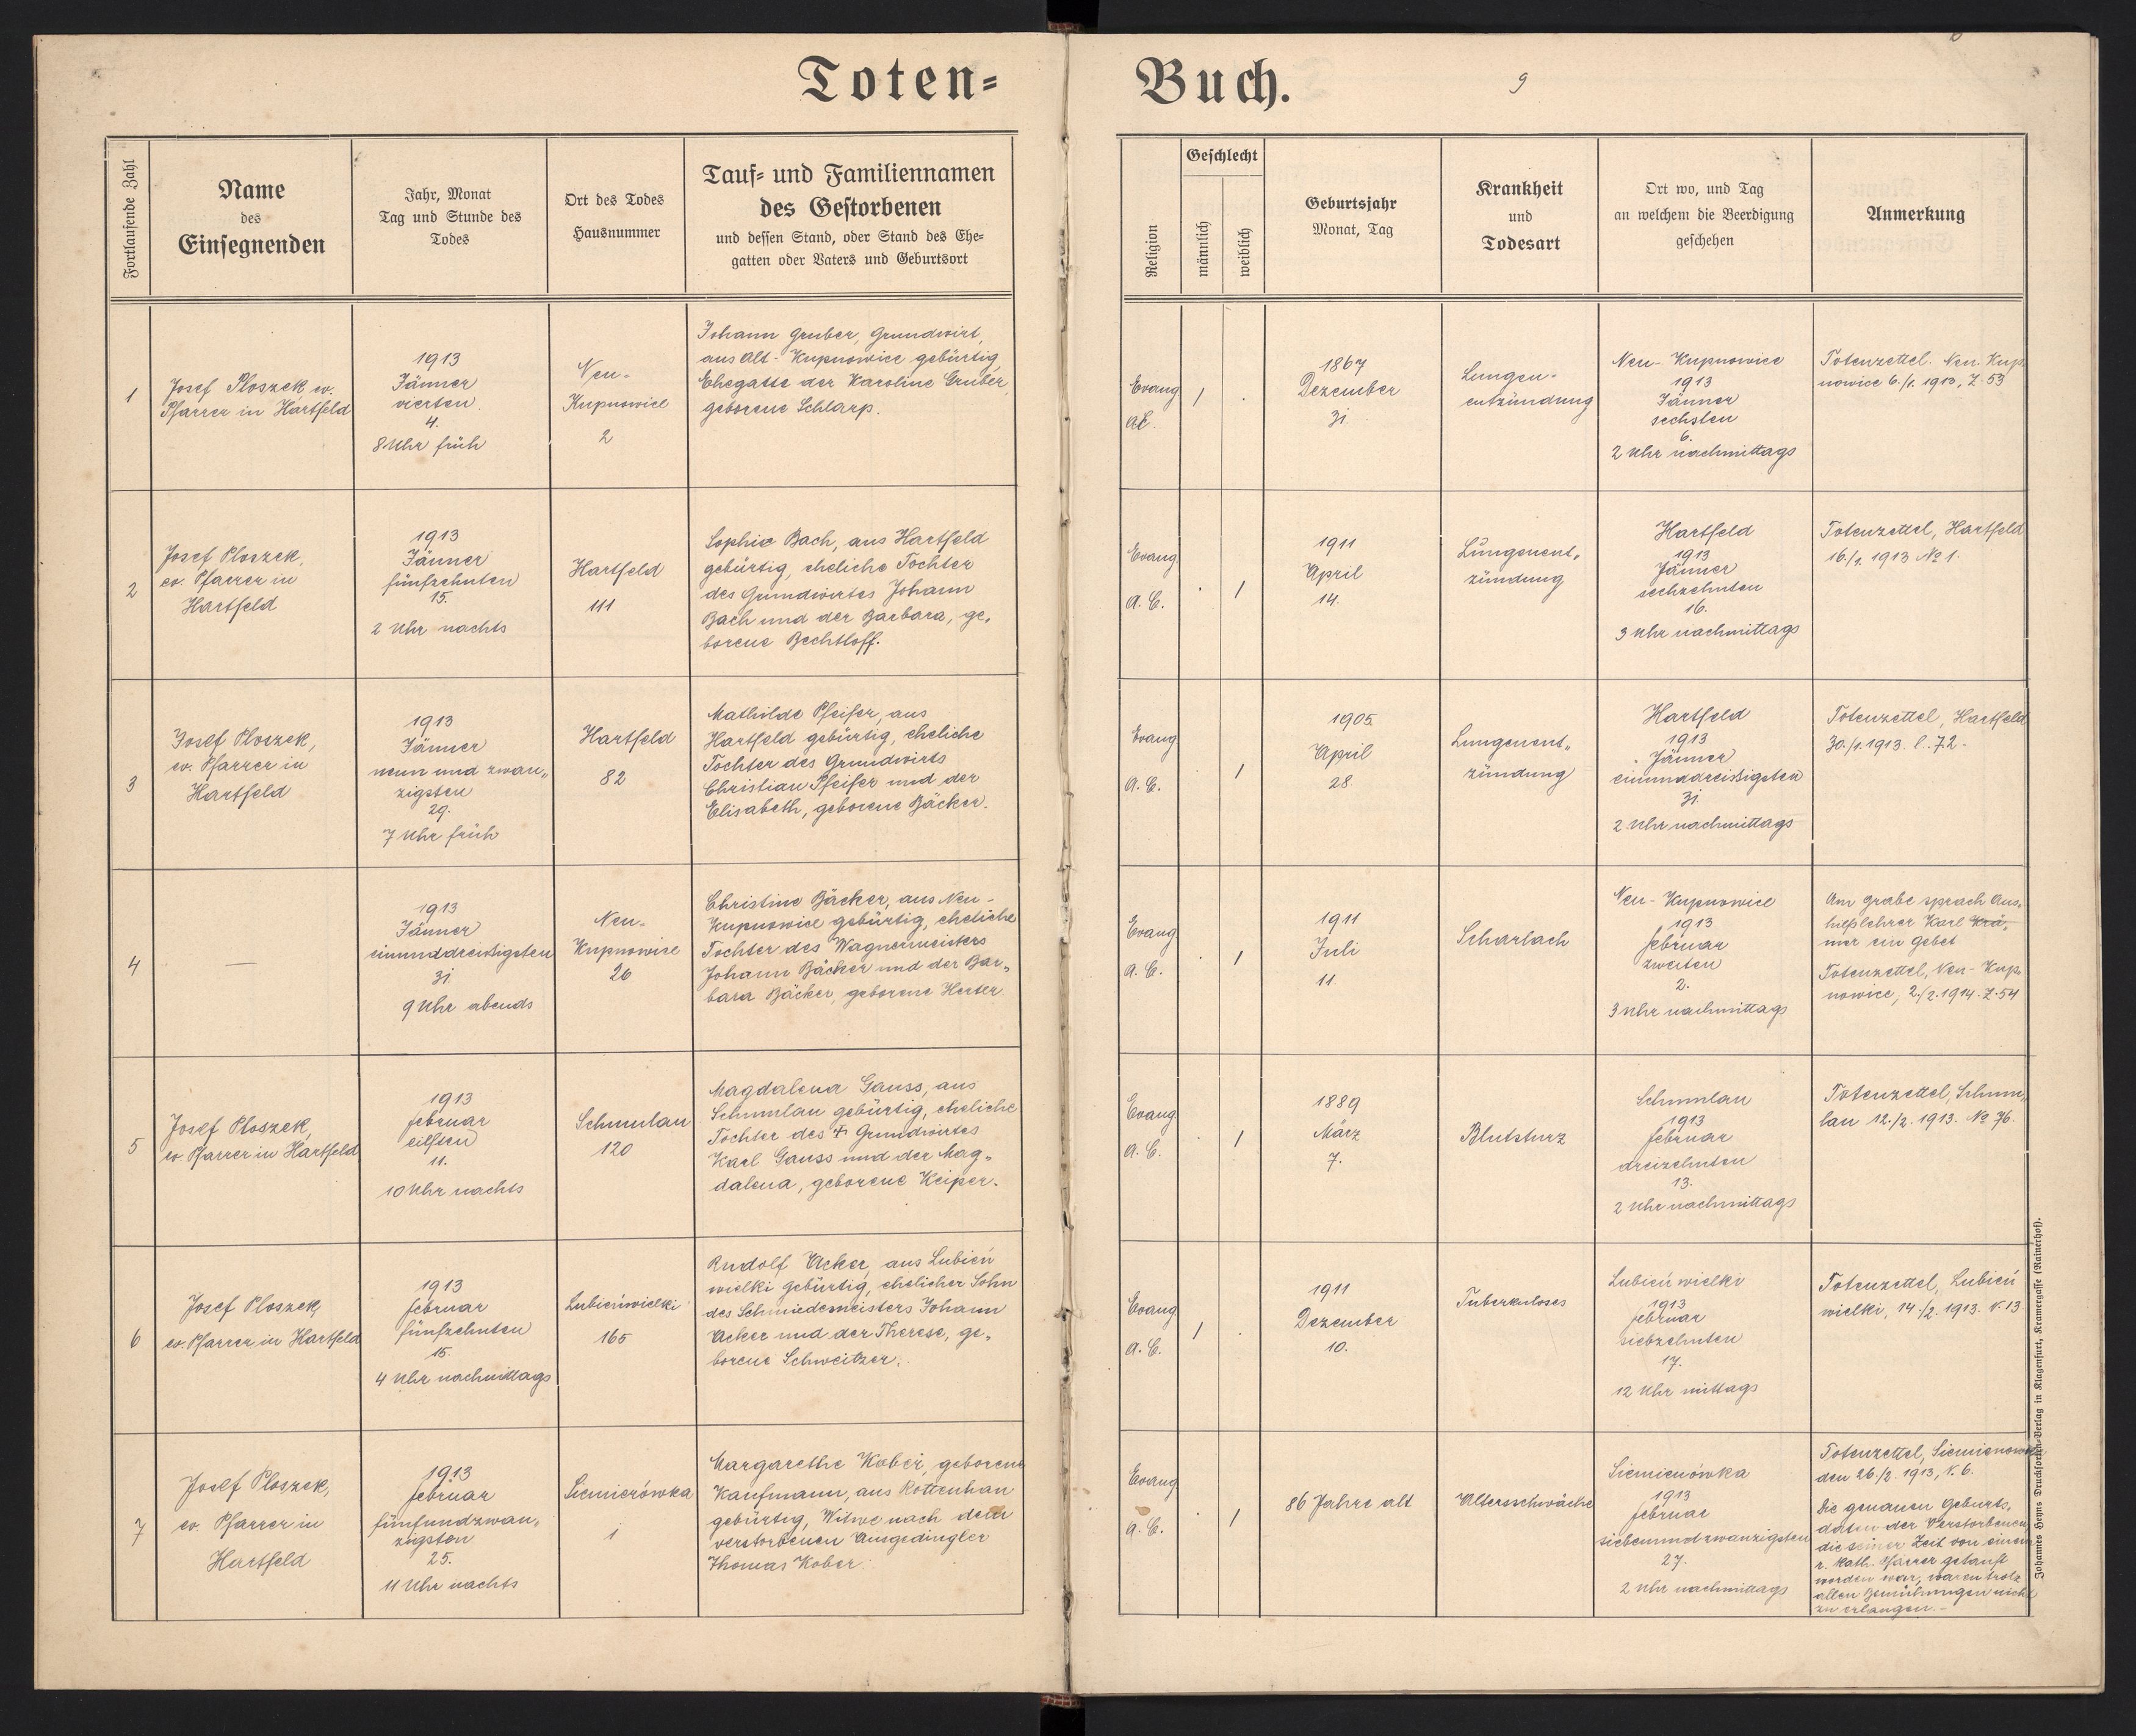 Toten=
Buch.
9
Fortlaufende Zahl
Name
des
Einsegnenden
Jahr, Monat
Tag und Stunde des
Todes
Ort des Todes
Hausnummer
Tauf= und Familiennamen
des Gestorbenen
und dessen Stand, oder Stand des Ehe=
gatten oder Vaters und Geburtsort
Religion
Geschlecht
männlich
weiblich
Geburtsjahr
Monat, Tag
Krankheit
und
Todesart
Ort wo, und Tag
an welchem die Beerdigung
geschehen
Anmerkung
1
Josef Ploszek, ev.
Pfarrer in Hartfeld
1913
Jänner
vierten
4.
8 Uhr früh
Neu-
Kupnowice
2
Johann Gruber, Grundwirt,
aus Alt-Kupnowice gebürtig,
Ehegatte der Karoline Gruber,
geborene Schlarp.
Evang
1867
Dezember
31.
Lungen-
entzündung
Neu-Kupnowice
1913
Jänner
sechsten
6.
2 Uhr nachmittags
Totenzettel. Neu-Kup
nowice 6./1. 1913, Z. 53
2
Josef Ploszek,
ev. Pfarrer in
Hartfeld
1913
Jänner
fünfzehnten
15.
2 Uhr nachts
Hartfeld
111
Sophie Bach, aus Hartfeld
gebürtig, eheliche Tochter
des Grundwirtes Johann
Bach und der Barbara, ge„
borene Bechtloff.
Evang
A. C.
1911
April
14.
Lungenent„
zündung
Hartfeld
1913
Jänner
sechzehnten
16.
3 Uhr nachmittags
Totenzettel, Hartfeld
16./1. 1913 № 1.
3
Josef Ploszek,
ev. Pfarrer in
Hartfeld
1913
Jänner
neun und zwan„
zigsten
29.
7 Uhr früh
Hartfeld
82
Mathilde Pfeifer, aus
Hartfeld gebürtig, eheliche
Tochter des Grundwirts
Christian Pfeifer und der
Elisabeth, geborene Bäcker.
Evang
A. C.
1905
April
28.
Lungenent„
zündung
Hartfeld
1913
Jänner
einunddreissigsten
31.
2 Uhr nachmittags
Totenzettel, Hartfeld
30./1. 1913. l. 72.
4
—
1913
Jänner
einunddreissigsten
31.
9 Uhr abends
Neu-
Kupnowice
26
Christine Bäcker, aus Neu-
Kupnowice gebürtig, eheliche
Tochter des Wagnermeisters
Johann Bäcker und der Bar„
bara Bäcker, geborene Herter.
Evang
A. C.
1911
Juli
11.
Scharlach
Neu-Kupnowice
1913
februar
zweiten
2.
3 Uhr nachmittags
Am grabe sprach Aus„
hilfslehrer Karl Krä„
mer ein gebet
Totenzettel, Neu-Kup„
nowice, 2./2. 1914. Z. 54
5
Josef Ploszek,
ev. Pfarrer in Hartfeld
1913
februar
eilften
11.
10 Uhr nachts
Schumlau
120
Magdalena Gauss, aus
Schumlau gebürtig, eheliche
Tochter des ✝ Grundwirtes
Karl Gauss und der Mag„
dalena, geborene Keiper.
Evang
A. C.
1889
März
7.
Blutsturz
Schumlau
1913
februar
dreizehnten
13.
2 Uhr nachmittags
Totenzettel, Schum„
lau 12./2. 1913. № 76.
6
Josef Ploszek,
ev. Pfarrer in Hartfeld
1913
februar
fünfzehnten
15.
4 Uhr nachmittags
Lubieńwielki
165
Rudolf Acker, aus Lubień
wielki gebürtig, ehelicher Sohn
des Schmiedemeisters Johann
Acker und der Therese, ge„
borene Schweitzer.
Evang
A. C.
1911
Dezember
10.
Tuberkuloses
Lubień wielki
1913
februar
siebzehnten
17.
12 Uhr mittags
Totenzettel, Lubień
wielki, 14./2. 1913. N. 13
7
Josef Ploszek,
ev. Pfarrer in
Hartfeld
1913
februar
fünfundzwan„
zigsten
25.
11 Uhr nachts
Siemierówka
1
Margarethe Kober, geborene
Kaufmann, aus Rottenhan
gebürtig, Witwe nach dem
verstorbenen Ausgedingler
Thomas Kober.
Evang
A. C.
86 Jahre alt
Altersschwäche
Siemienówka
1913
februar
siebenundzwanzigsten
27.
2 Uhr nachmittags
Totenzettel, Siemienowka
den 26./2. 1913, N. 6.
Die genauen Geburts„
daten der Verstorbenen,
die seiner Zeit von einem
r. kath. Pfarrer getauft
worden war, waren trotz
allen Bemühungen nicht
zu erlangen.–
Johannes Heyns Drucksorten-Verlag in Klagenfurt, Kramergasse (Rainerhof).